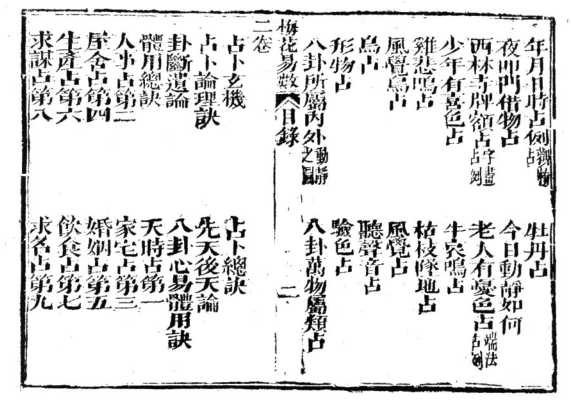 年月日時占例觀物占 牡丹占
夜叩門借物占 今日動靜如何
西林寺牌額占字畫占例 老人有憂色占端法占例
少年有喜色占 牛哀鳴占
雞悲鳴占 枯枝墜地占
風覺鳥占 風覺占
鳥占 聽聲音占
形物占 驗色占
八卦所屬內外動靜之圖 八卦萬物屬類占
梅花易數 目錄 二
二卷
占卜玄機 占卜總訣
占卜論理訣 先天後天論
卦斷遺論 八卦心易體用訣
體用總訣 天時占第一
人事占第二 家宅占第三
屋舍占第四 婚姻占第五
生產占第六 飲食占第七
求謀占第八 求名占第九